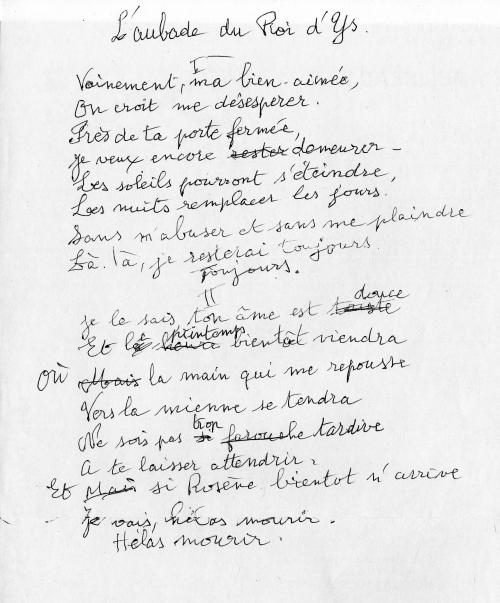 L'aubade du Roi d'Ys.
I
Vainement, ma bien-aimée,
On croit me désespérer.
Près de ta porte fermée,
Je veux encore rester demeurer -
Les soleils pourront s'éteindre,
Les nuits remplacer les jours.
Sans m'abuser et sans me plaindre
Là. là, je resterai toujours.
Toujours.
II
Je le sais ton âme est douce
Et le heure printemps bientôt viendra
Où Mais la main qui me repousse
Vers la mienne se tendra
Ne sois pas trop farouche tardive
A te laisser attendrir.
Et Mais si Rosène bientot n'arrive
Je vais, hélas mourir.
Hélas mourir.